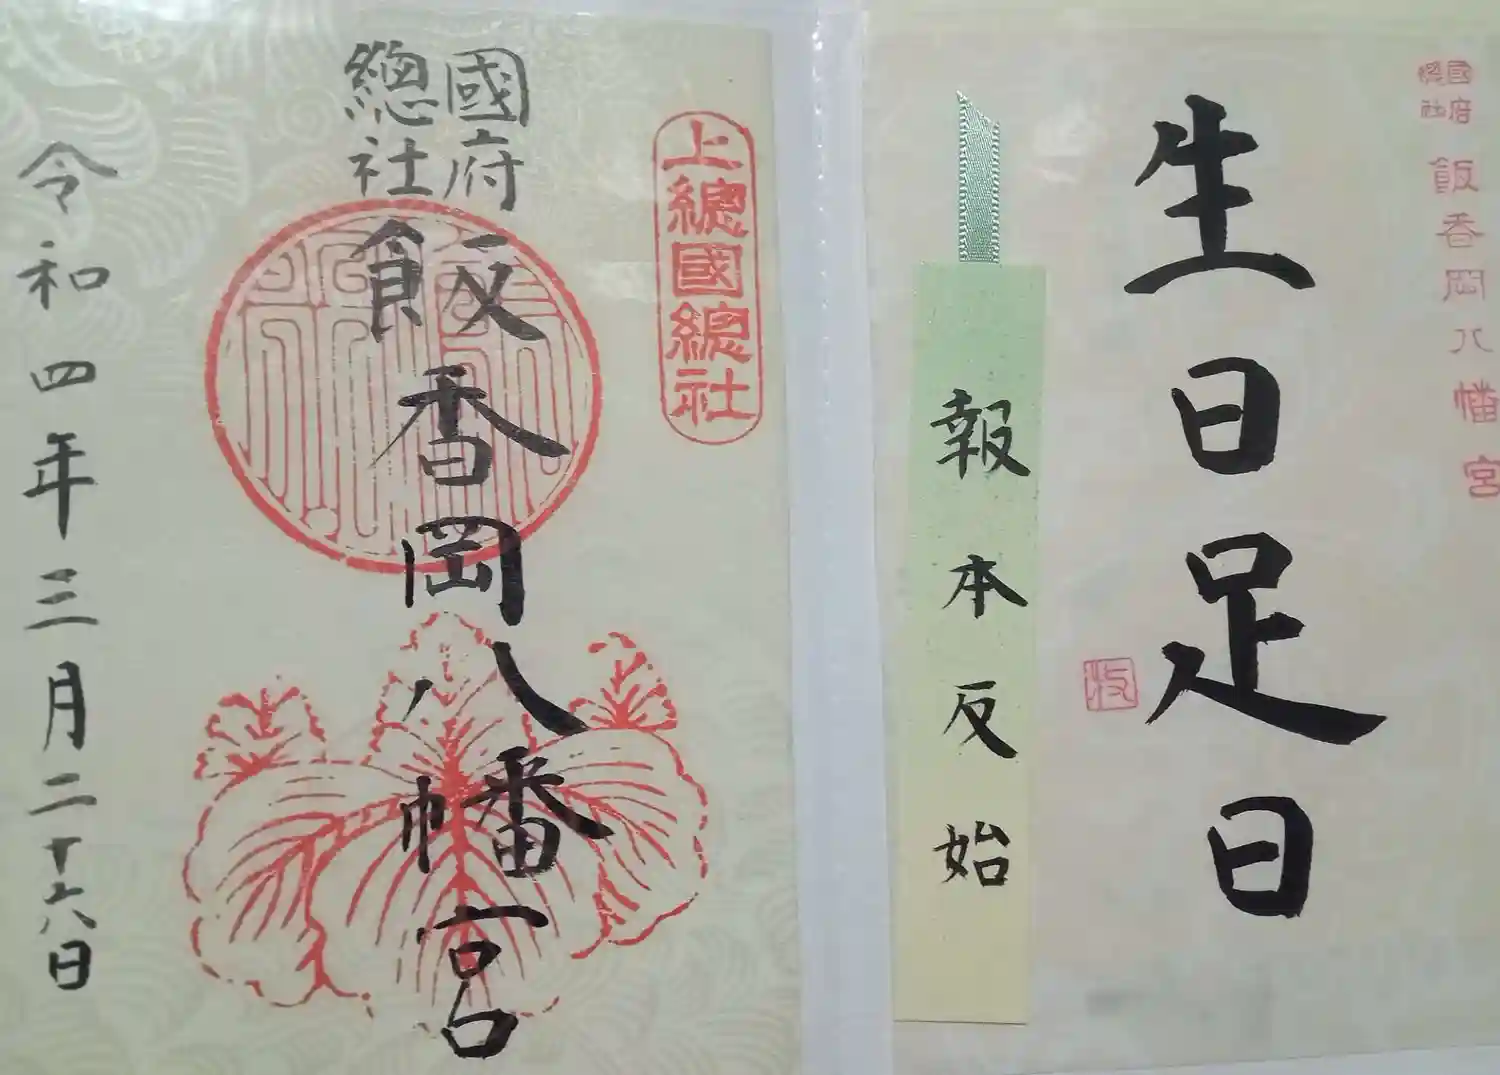 國府
總社
飯香岡八幡宮
生日足日
牧
報本反始
上總國總社
國府
總社
飯香岡八幡宮
令和四年三月二十六日